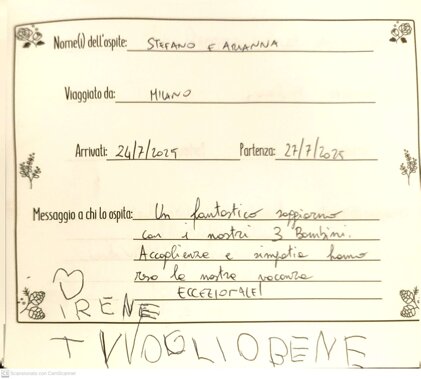 Nome(i) dell'ospite: STEFANO E ARIANNA
Viaggiato da: MILANO
Arrivati: 24/7/2025 Partenza: 27/7/2025
Messaggio a chi lo ospita: Un fantastico soggiorno
con i nostri 3 Bambini.
Accoglienza e simpatia hanno
reso la nostra vacanza
ECCEZIONALE!
IRENE
T VVOGLIOBENE
Scansionato con CamScanner